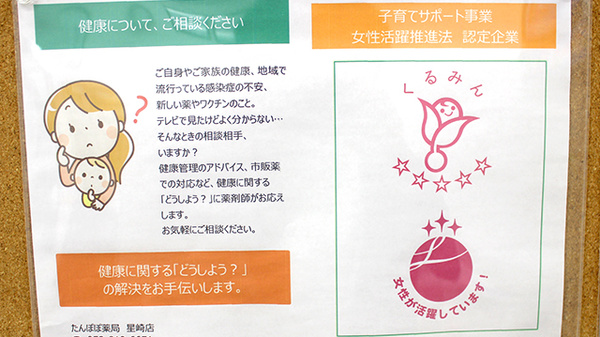 健康について、ご相談ください
ご自身やご家族の健康、地域で
流行っている感染症の不安、
新しい薬やワクチンのこと。
テレビで見たけどよく分からない…
そんなときの相談相手、
いますか？
健康管理のアドバイス、市販薬
での対応など、健康に関する
「どうしよう？」に薬剤師がお応え
します。
お気軽にご相談ください。
?
健康に関する「どうしよう？」
の解決をお手伝いします。
たんぽぽ薬局　星崎店
子育てサポート事業
女性活躍推進法　認定企業
くるみん
女性が活躍しています！